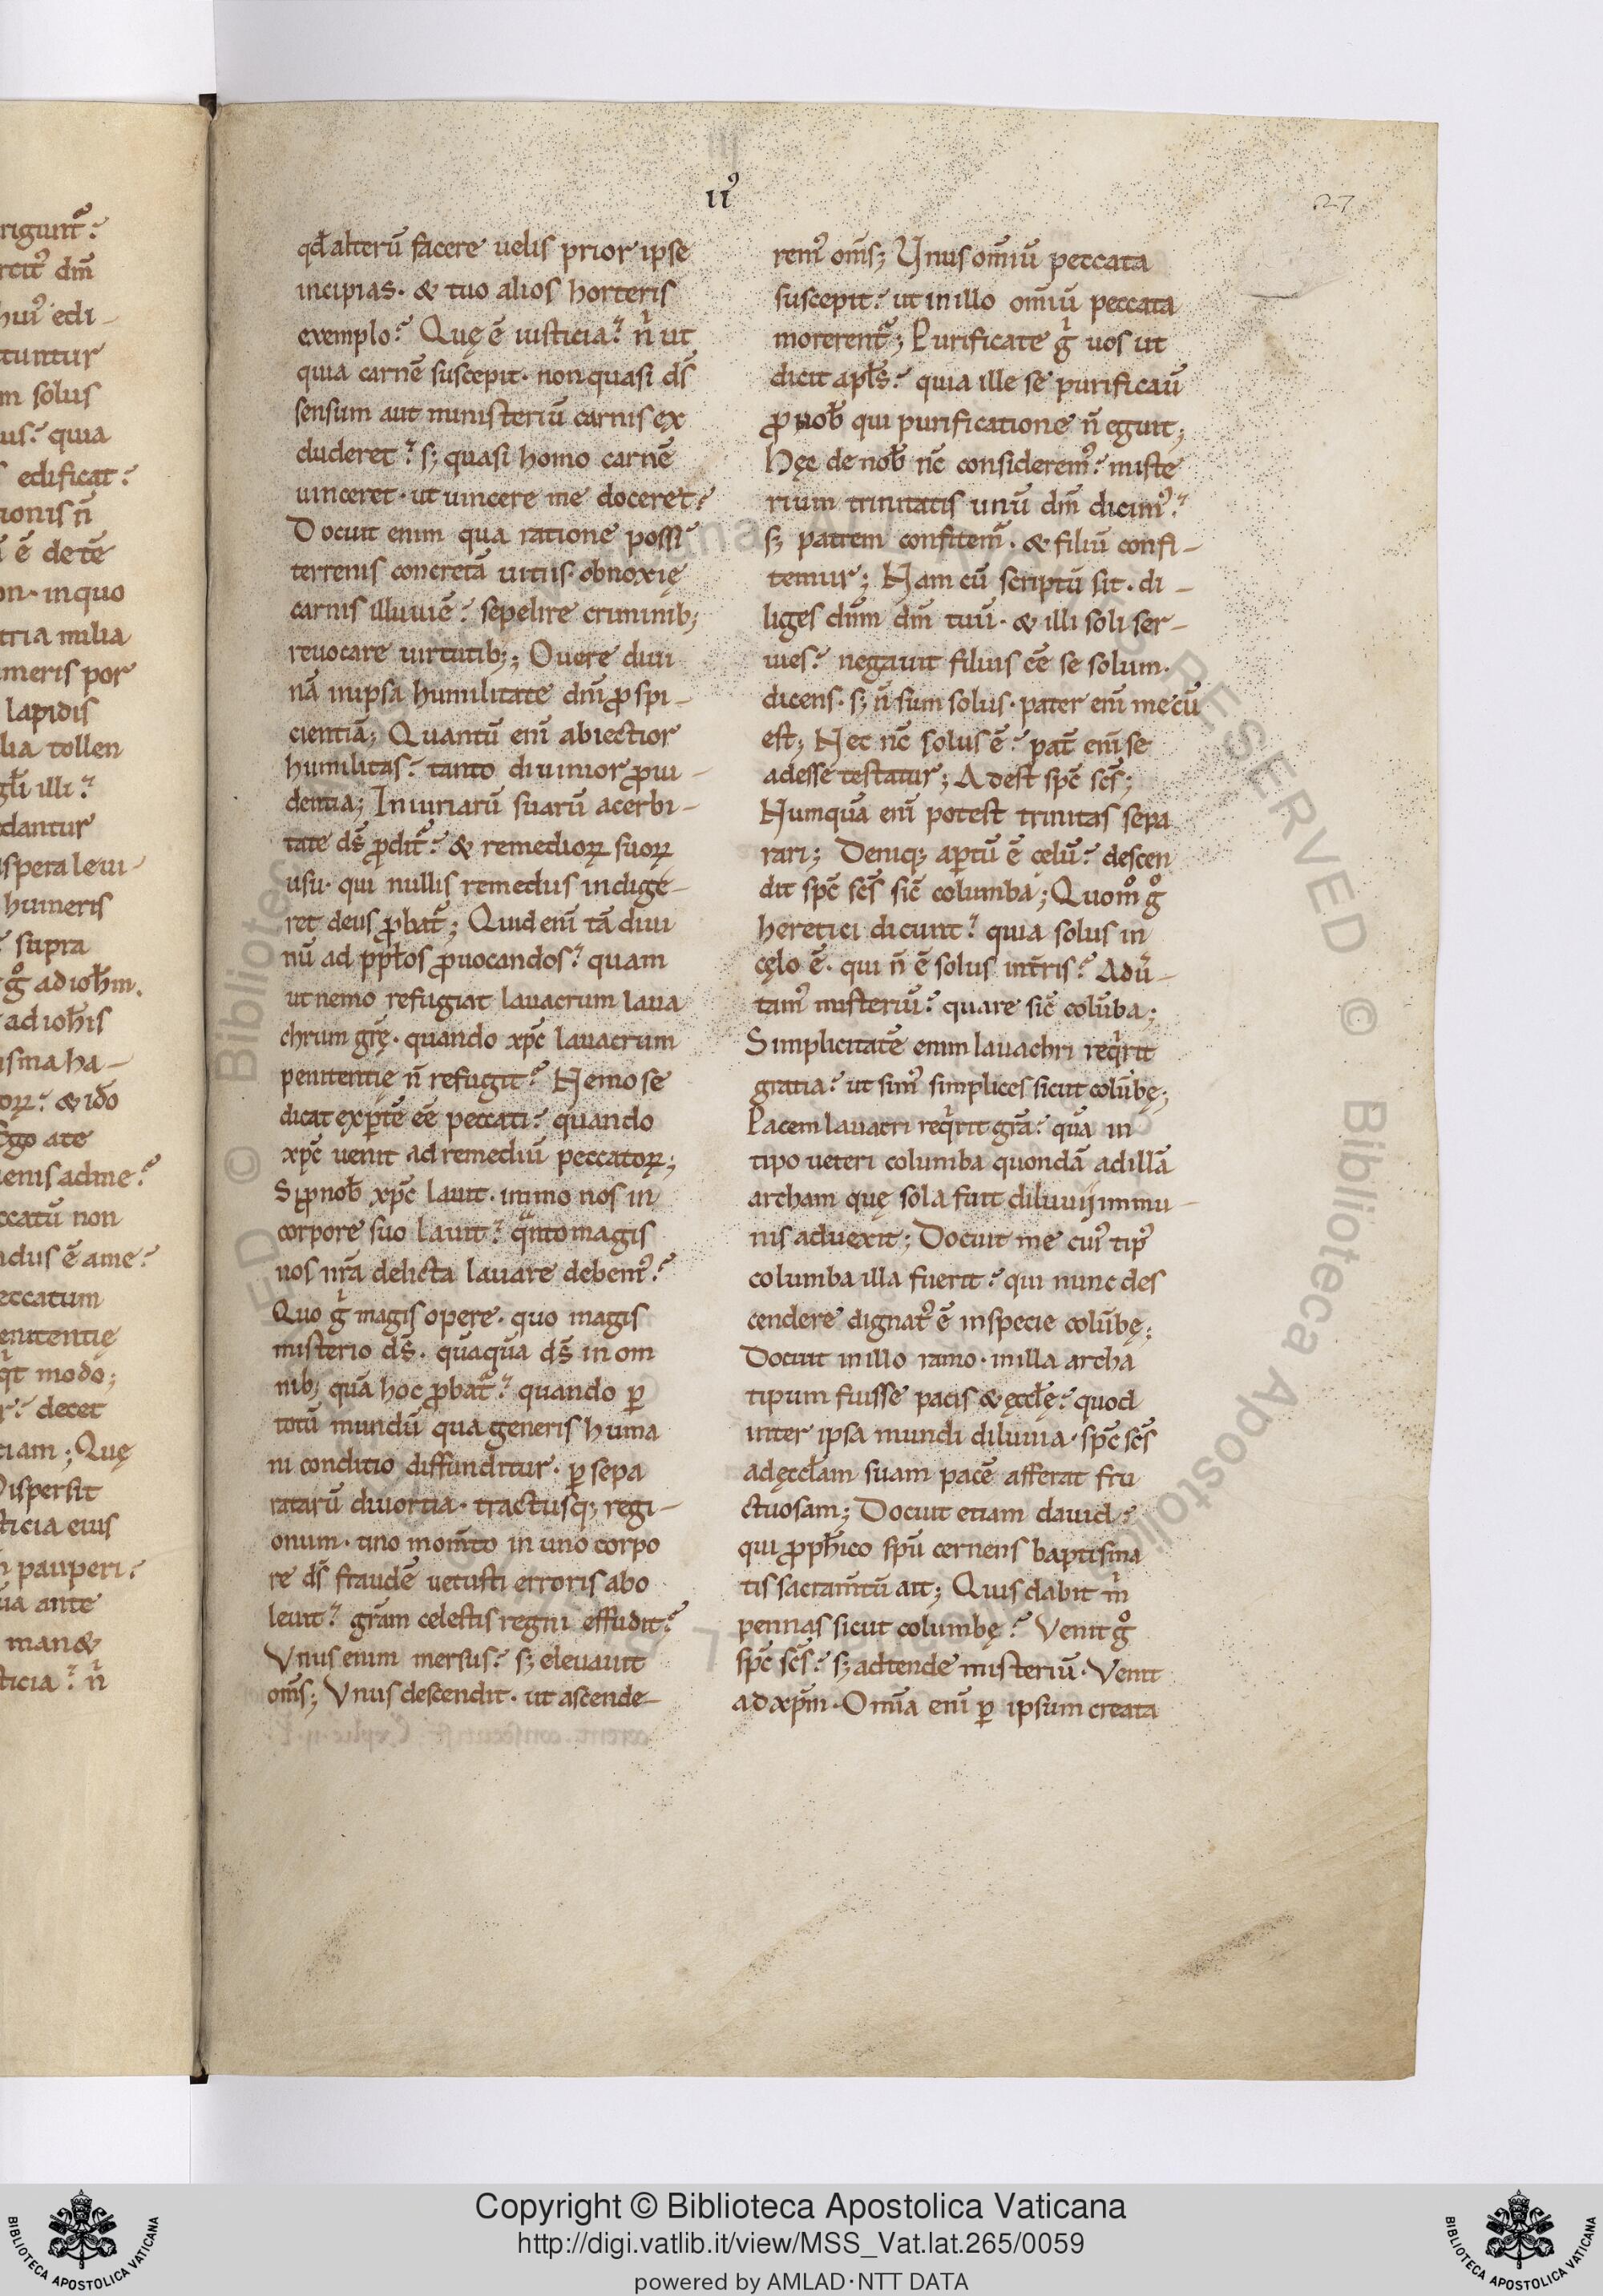 rigunt᷑.
rcit᷒ dm̄
hui᷒ edi-
ttuntur
m solus
us. quia
edificat.
ionis n̄
ē de tē
on. in quo
tria milia
umeris por
lapidis
lia tollen
gł̄i illi.
dantur
spera leui-
humeris
supra
gͦ ad ioh̄m.
ad ioh̄is
isma ha-
oꝝ. & id̄o
Ego a te
uenis ad me.
ccatū non
ndus ē a me.
peccatum
enitentię
qͥt modo;
decet
ciam; Quę
Dispersit
sticia eius
pauperi.
ua ante
man&
sticia. nͥ
ii᷒
27
qđ alterū facere uelis prior ipse
incipias. & tuo alios horteris
exemplo. Quę ē iusticia. nͥ ut
quia carnē suscepit. non quasi ds̄
sensum aut ministeriū carnis ex
cluderet. sꝫ quasi homo carnē
uinceret. ut uincere me doceret.
Docuit enim qua ratione possī
terrenis concretā uitiis. obnoxię
carnis illuuiē. sepelire criminibꝫ
reuocare uirtutibꝫ; O uere diui
nā in ipsa humilitate dn̄i ꝓspi-
cientiā; Quantū eni᷒ abiectior
humilitas. tanto diuinior ꝓui-
dentia; Iniuriarū suarū acerbi-
tate ds̄ ꝓdit᷑. & remedioꝝ suoꝝ
usu. qui nullis remediis indige-
ret deus ꝓbat᷑; Quid enī tā diui
nū ad ppłos ꝓuocandos. quam
ut nemo refugiat lauacrum laua
chrum grę̄. quando xpc̄ lauacrum
penitentię n̄ refugit. Nemo se
dicat exꝑtē eē peccati. quando
xpc̄ uenit ad remediū peccatoꝝ;
Si ꝓ nob̄ xpc̄ lauit. immo nos in
corpore suo lauit. qͣnto magis
nos nr̄a delicta lauare debem᷒.
Quo gͥ magis opere. quo magis
misterio ds̄. quāquā ds̄ in om
nibꝫ quā hoc ꝓbat᷑. quando ꝑ
totū mundū qua generis huma
ni conditio diffunditur. ꝑ sepa
ratarū diuortia. tractusqꝫ regi-
onum. uno mom̄to in uno corpo
re ds̄ fraudē uetusti erroris abo
leuit. grām celestis regni effudit.
Vnus enim mersus. sꝫ eleuauit
om̄s; Vnus descendit. ut ascende-
rem᷒ om̄s; Unus om̄iū peccata
suscepit. ut in illo om̄iū peccata
morerent᷑; Purificate gͥ uos ut
dicit apłs. quia ille se purificau᷒
ꝓ nob̄ qui purificatione n̄ eguit;
Hęc de nob̄ nc̄ considerem᷒. miste
rium trinitatis unū dm̄ dicim᷒.
sꝫ patrem confitem᷑. & filiū confi-
temur; Nam cū scriptū sit. di-
liges dn̄m dm̄ tuū. & illi soli ser-
uies. negauit filius eē se solum.
dicens. sꝫ n̄ sum solus. pater enī mecū
est; Nec nc̄ solus ē. pat᷑ enī se
adesse testatur; Adest spc̄ sc̄s;
Numquā enī potest trinitas sepa
rari; Deniqꝫ aꝑtū ē cęlū. descen
dit spc̄ sc̄s sic̄ columba; Quomͦ gͦ
heretici dicunt. quia solus in
cęlo ē. qui n̄ ē solus in tr̄is. Aduͥ-
tam᷒ misteriū. quare sic̄ colūba;
Simplicitatē enim lauachri reqͥrit
gratia. ut sim᷒ simplices sicut colūbę;
Pacem lauacri reqͥrit grā. quā in
tipo ueteri columba quondā ad illā
archam quę sola fuit diluuij immu-
nis aduexit; Docuit me cui᷒ tip᷒
columba illa fuerit. qui nunc des
cendere dignat᷒ ē in specie colūbę;
Docuit in illo ramo. in illa archa
tipum fuisse pacis & ęccłę. quod
inter ipsa mundi diluuia. spc̄ sc̄s
ad ęccłam suam pacē afferat fru
ctuosam; Docuit etiam dauid.
qui ꝓph̄ico spū cernens baptisma
tis sacram̄tū ait; Quis dabit mͥ
pennas sicut columbę. Venit gͦ
spc̄ sc̄s. sꝫ adtende misteriū. Venit
ad xpm̄. Omīa enī ꝑ ipsum creata
© Biblioteca Apostolica Vaticana ALL RIGHTS RESERVED
Copyright © Biblioteca Apostolica Vaticana
http://digi.vatlib.it/view/MSS_Vat.lat.265/0059
powered by AMLAD·NTT DATA
BIBLIOTECA APOSTOLICA VATICANA
BIBLIOTECA APOSTOLICA VATICANA